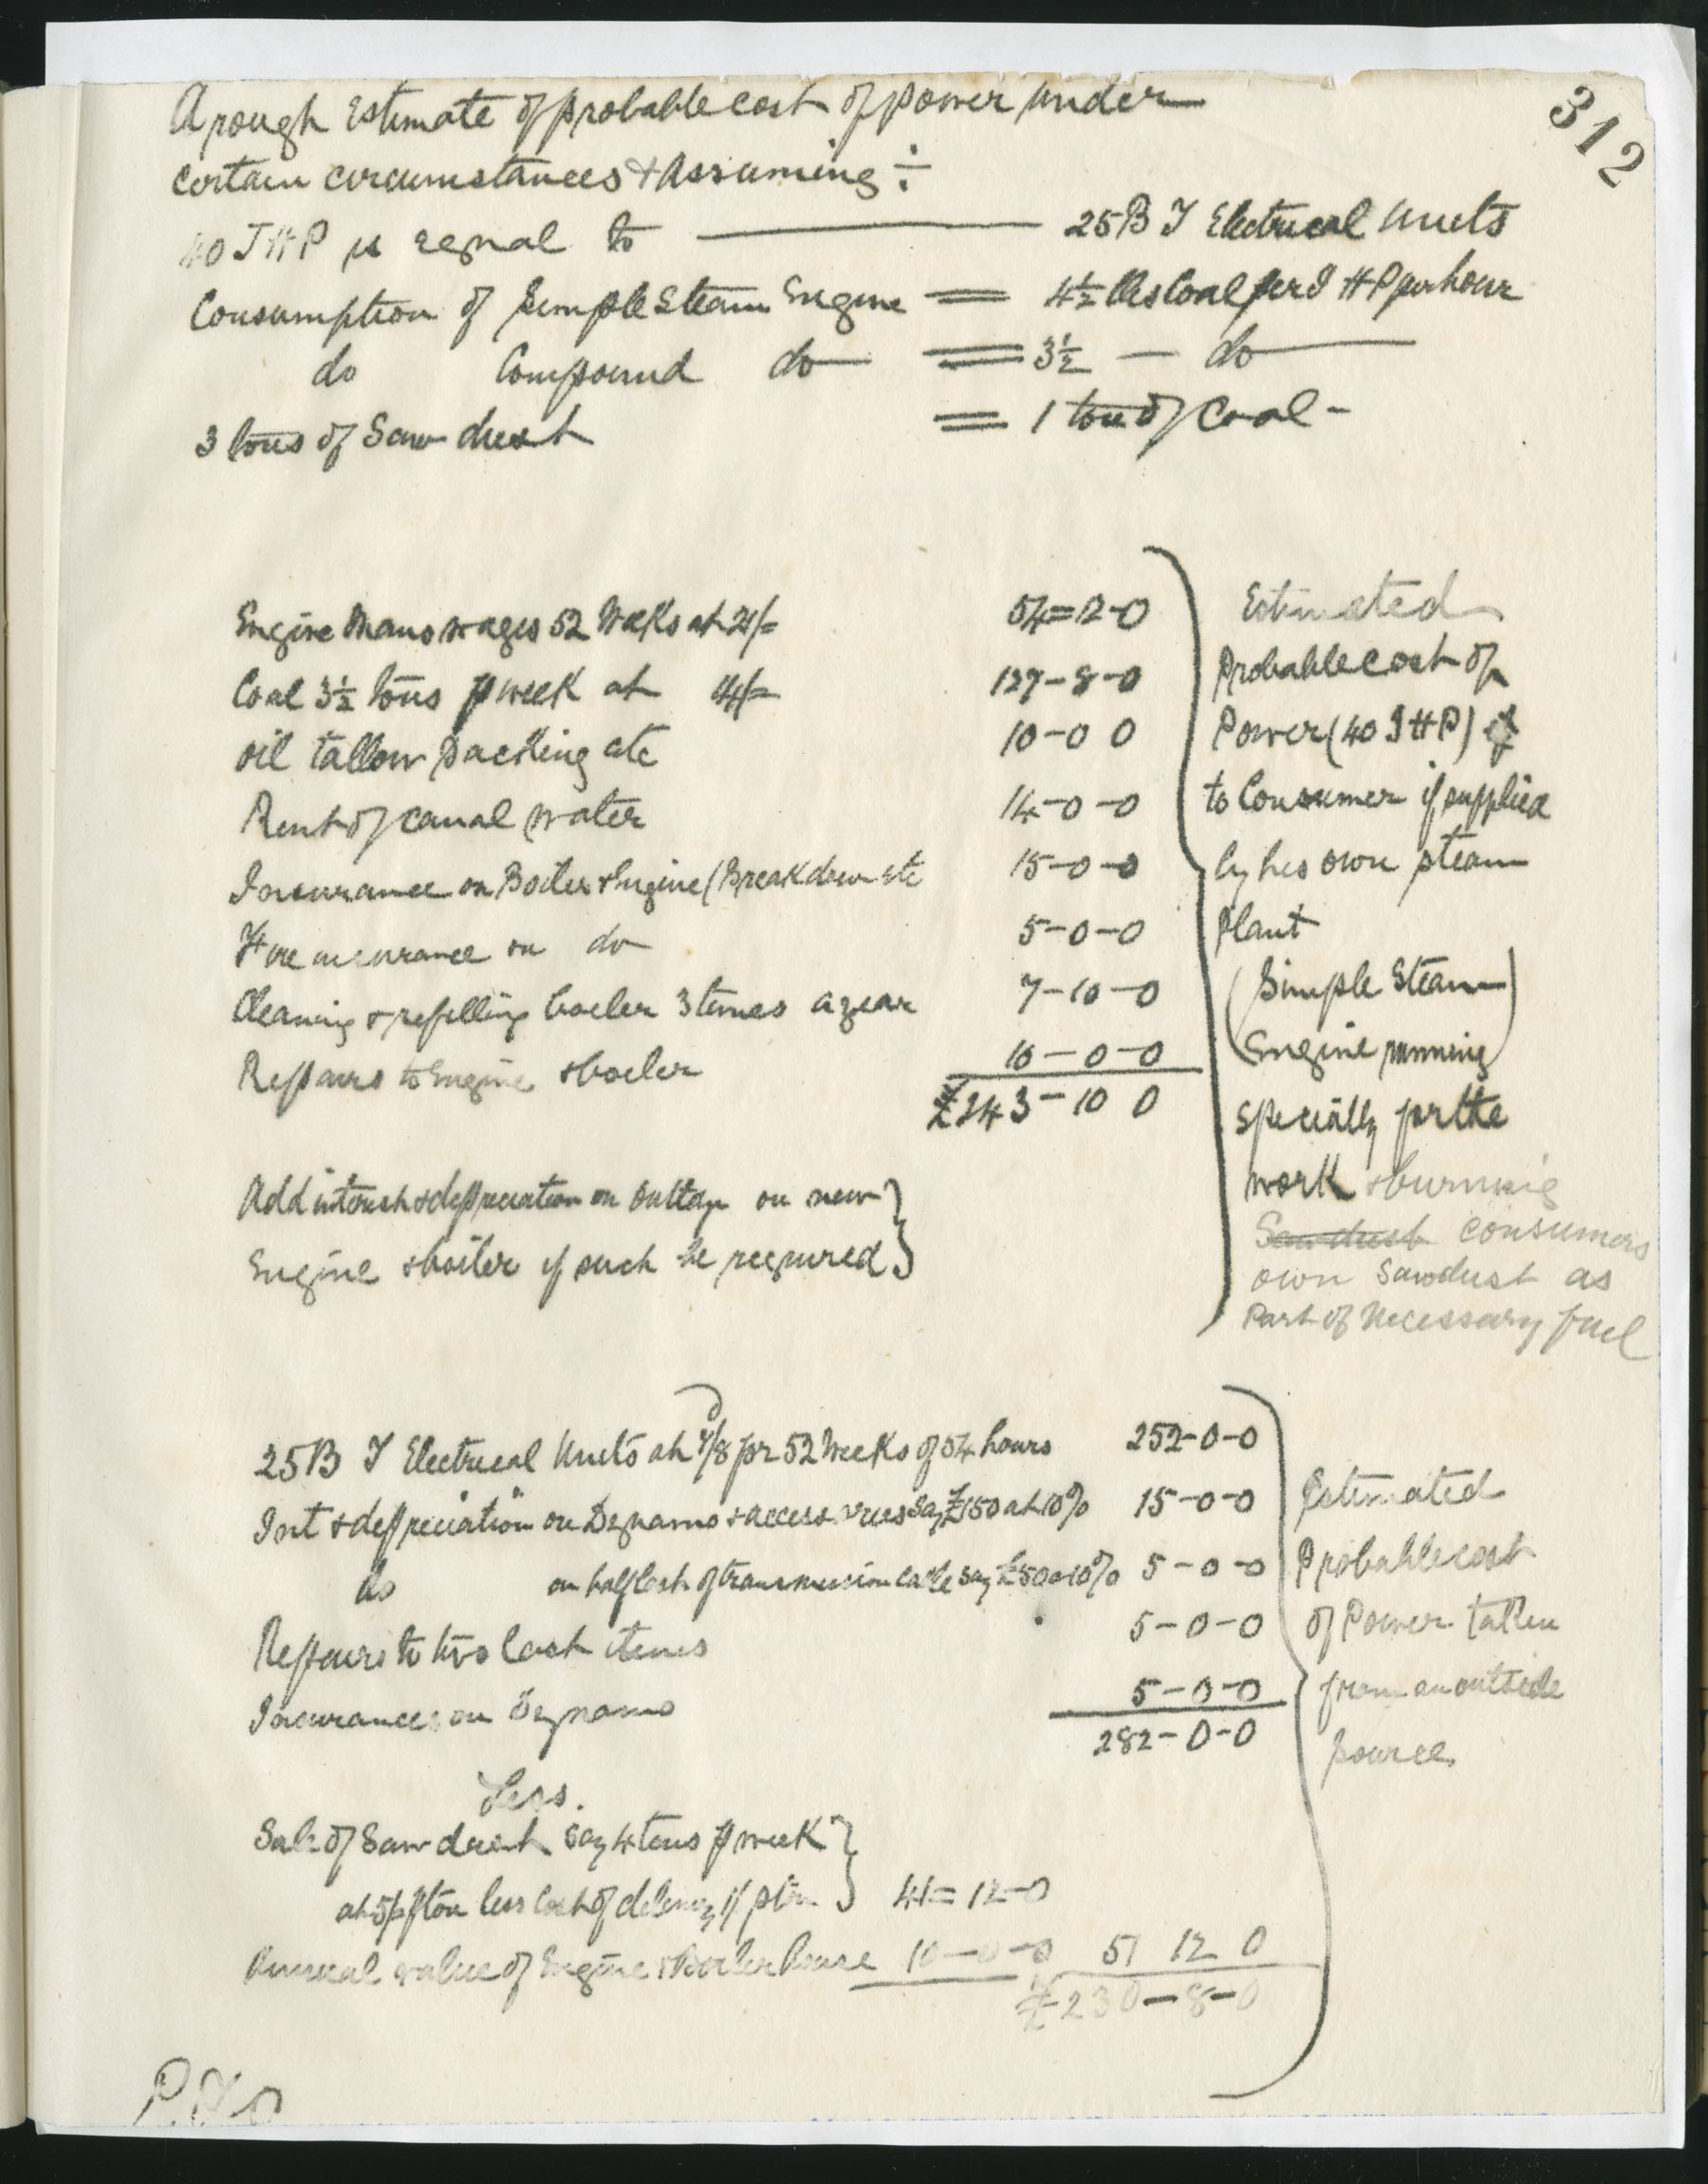 312
A rough Estimate of probable cost of power under
certain circumstances & Assuming ÷
40 I H P is equal to — 25 B T Electrical Units
Consumption of Simple Steam Engine = 4½ lbs Coal per I H P per hour
do Compound do = 3½ — do —
3 tons of Sawdust = 1 ton of Coal -
Engine Mans wages 52 Weeks at 21/= 54=12-0
Coal 3½ tons p week at 14/= 127-8-0
oil tallow packing etc 10-0 0
Rent of canal water 14-0-0
Insurance on Boiler & Engine (Breakdown etc 15-0-0
Fire insurance on do 5-0-0
Cleaning & refilling boiler 3 times a year 7-10-0
Repairs to Engine & boiler 10-0-0
£243-10 0
Add interest & depreciation on outlay on new
Engine & boiler if such be required
Estimated
Probable cost of
Power (40 I H P)
to Consumer if supplied
by his own steam
Plant
(Simple Steam
Engine running)
specially for the
work & burning
Sawdust consumers
own Sawdust as
Part of Necessary fuel
25 B T Electrical Units at 7/8 pr 52 Weeks of 54 hours 252-0-0
Int & depreciation on Dynamo & accessories say £150 at 10% 15-0-0
do on half cost of transmission cable say £50 @ 10% 5-0-0
Repairs to two last items 5-0-0
Insurance on Dynamo 5-0-0
282-0-0
Estimated
Probable cost
of Power taken
from an outside
source
Less.
Sale of Sawdust say 4 tons p week
at 5/- p ton less cost of delivery 1/ p ton 41=12-0
Annual value of Engine & Boiler house 10-0-0 51 12 0
£230-8-0
P.T.O